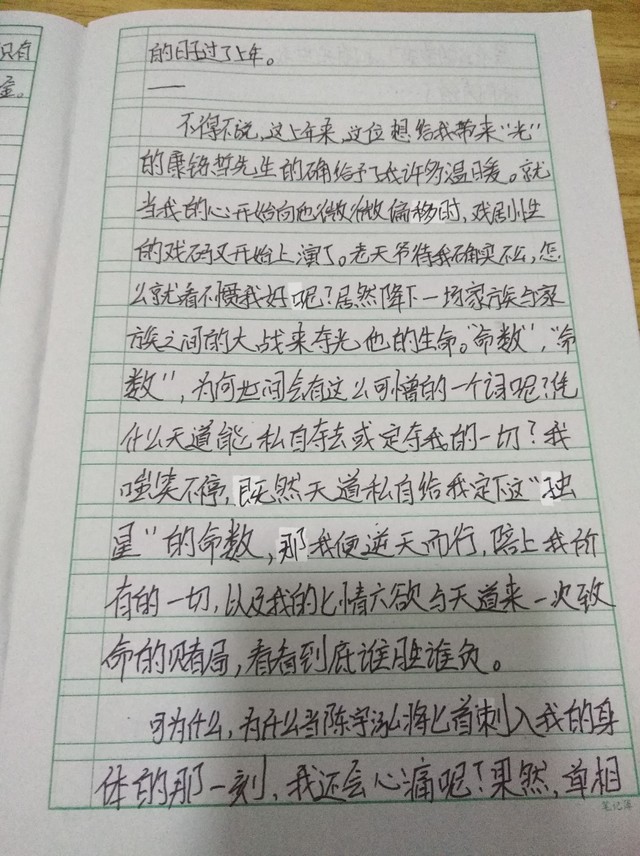 只有
的日子过了上年。
不得不说,这上年来,这位想给我带来“光”
的康铭哲先生的确给予了我许多温暖。就
当我的心开始向他微微偏移时,戏剧性
的戏码又开始上演了。老天爷待我确实不公,怎
么就看不惯我好呢?居然降下一场家族与家
族之间的大战来夺光他的生命。“命数”,“命
数”,为何世间会有这么可憎的一个词呢?凭
什么天道能私自夺去或定夺我的一切?我
嗤笑不停,既然天道私自给我定下这“独
星”的命数,那我便逆天而行,陪上我所
有的一切,以及我的七情六欲与天道来一次致
命的赌局,看看到底谁胜谁负。
可为什么,为什么当陈宇泓将匕首刺入我的身
体的那一刻,我还会心痛呢?果然,单相
笔记簿